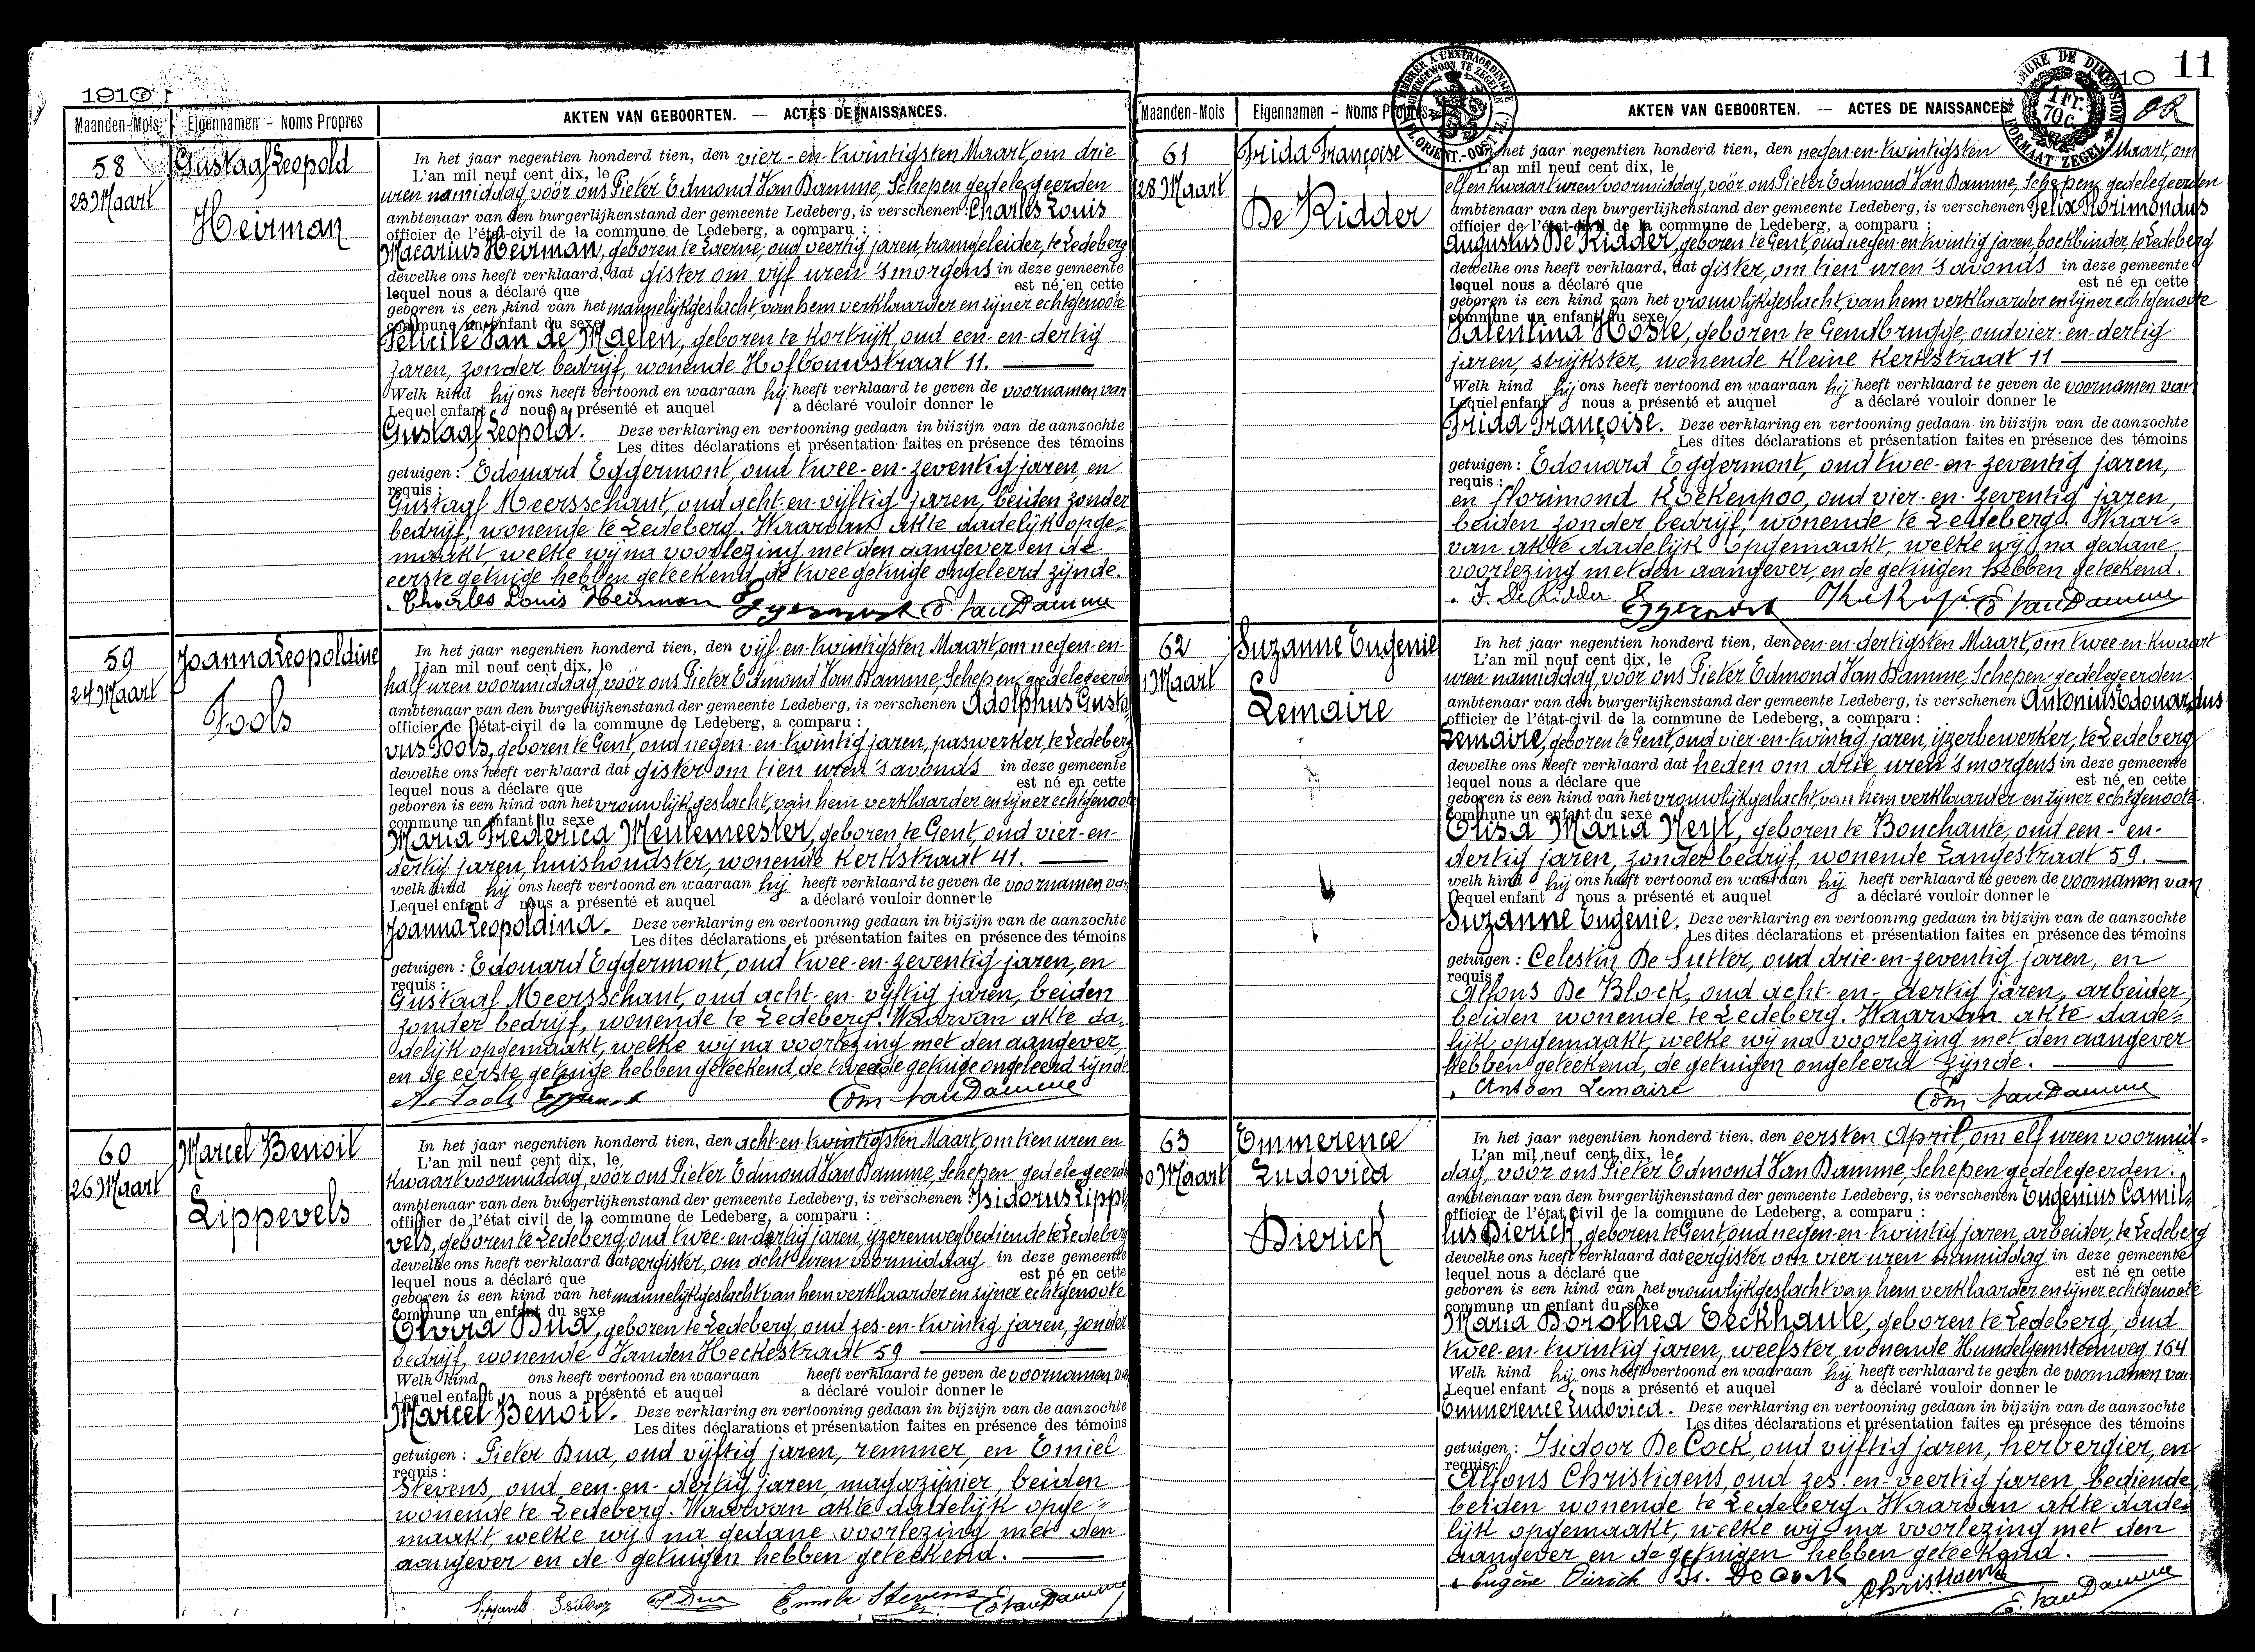 1910
Maanden-Mois Eigennamen – Noms Propres AKTEN VAN GEBOORTEN. — ACTES DE NAISSANCES.
58
23 Maart
Gustaaf Leopold
Heirman
In het jaar negentien honderd tien, den vier-en-twintigsten Maart, om drie
L'an mil neuf cent dix, le
uren namiddag, vóór ons Pieter Edmond Van Damme, Schepen gedelegeerden
ambtenaar van den burgerlijkenstand der gemeente Ledeberg, is verschenen : Charles Louis
officier de l'état-civil de la commune de Ledeberg, a comparu :
Macarius Heirman, geboren te Everne, oud veertig jaren, tramgeleider, te Ledeberg
dewelke ons heeft verklaard, dat gister om vijf uren 's morgens in deze gemeente
lequel nous a déclaré que est né en cette
geboren is een kind van het mannelijk geslacht, van hem verklaarder en zijner echtgenoote
commune un enfant du sexe
Felicité Van de Maelen, geboren te Kortrijk, oud een-en-dertig
jaren, zonder bedrijf, wonende Hofbouwstraat 11.
Welk kind hij ons heeft vertoond en waaraan hij heeft verklaard te geven de voornamen van
Lequel enfant nous a présenté et auquel a déclaré vouloir donner le
Gustaaf Leopold. Deze verklaring en vertooning gedaan in bijzijn van de aanzochte
Les dites déclarations et présentation faites en présence des témoins
getuigen : Edouard Eggermont, oud twee-en-zeventig jaren, en
requis :
Gustaaf Meersschaut, oud acht-en-vijftig jaren, beiden zonder
bedrijf, wonende te Ledeberg. Waarvan akte dadelijk opge-
maakt, welke wij na voorlezing met den aangever en de
eerste getuige hebben geteekend, de twee getuige ongeleerd zijnde.
Charles Louis Heirman Eggermont E. Van Damme
59
24 Maart
Joanna Leopoldine
Fools
In het jaar negentien honderd tien, den vijf-en-twintigsten Maart, om negen-en-
L'an mil neuf cent dix, le
half uren voormiddag, vóór ons Pieter Edmond Van Damme, Schepen gedelegeerden
ambtenaar van den burgerlijkenstand der gemeente Ledeberg, is verschenen Adolphus Gusta-
officier de l'état-civil de la commune de Ledeberg, a comparu :
vus Fools, geboren te Gent, oud negen-en-twintig jaren, paswerker, te Ledeberg
dewelke ons heeft verklaard dat gister om tien uren 's avonds in deze gemeente
lequel nous a déclare que est né en cette
geboren is een kind van het vrouwlijk geslacht, van hem verklaarder en zijner echtgenoote
commune un enfant du sexe
Maria Frederica Meulemeester, geboren te Gent, oud vier-en-
dertig jaren, huishoudster, wonende Kerkstraat 41.
welk kind hij ons heeft vertoond en waaraan hij heeft verklaard te geven de voornamen van
Lequel enfant nous a présenté et auquel a déclaré vouloir donner le
Joanna Leopoldina. Deze verklaring en vertooning gedaan in bijzijn van de aanzochte
Les dites déclarations et présentation faites en présence des témoins
getuigen : Edouard Eggermont, oud twee-en-zeventig jaren, en
requis :
Gustaaf Meersschaut, oud acht-en-vijftig jaren, beiden
zonder bedrijf, wonende te Ledeberg. Waarvan akte da-
delijk opgemaakt, welke wij na voorlezing met den aangever
en de eerste getuige hebben geteekend, de tweede getuige ongeleerd zijnde
A. Fools Eggermont Edm. Van Damme
60
26 Maart
Marcel Benoit
Lippevels
In het jaar negentien honderd tien, den acht-en-twintigsten Maart, om tien uren en
L'an mil neuf cent dix, le
kwaart voormiddag, vóór ons Pieter Edmond Van Damme, Schepen gedelegeerden
ambtenaar van den burgerlijkenstand der gemeente Ledeberg, is verschenen : Isidorus Lippe-
officier de l'état civil de la commune de Ledeberg, a comparu :
vels, geboren te Ledeberg, oud twee-en-dertig jaren, yzerenwegbediende te Ledeberg
dewelke ons heeft verklaard dat eergister, om acht uren voormiddag in deze gemeente
lequel nous a déclaré que est né en cette
geboren is een kind van het mannelijk geslacht van hem verklaarder en zijner echtgenoote
commune un enfant du sexe
Elvira Dua, geboren te Ledeberg, oud zes-en-twintig jaren, zonder
bedrijf, wonende Vanden Heckestraat 59
Welk kind ons heeft vertoond en waaraan heeft verklaard te geven de voornamen van
Lequel enfant nous a présenté et auquel a déclaré vouloir donner le
Marcel Benoit. Deze verklaring en vertooning gedaan in bijzijn van de aanzochte
Les dites déclarations et présentation faites en présence des témoins
getuigen : Pieter Dua, oud vijftig jaren, remmer, en Emiel
requis :
Stevens, oud een-en-dertig jaren, magazijnier, beiden
wonende te Ledeberg. Waarvan akte dadelijk opge-
maakt, welke wij na gedane voorlezing met den
aangever en de getuigen hebben geteekend.
Lippevels Isidoor P. Dua Emile Stevens E. Van Damme
10 11
TIMBRE DE DIMENSION 1 Fr. 70 C. FORMAAT ZEGEL
Maanden-Mois Eigennamen – Noms Propres AKTEN VAN GEBOORTEN. — ACTES DE NAISSANCES.
61
28 Maart
Frida Françoise
De Ridder
In het jaar negentien honderd tien, den negen-en-twintigsten Maart, om
L'an mil neuf cent dix, le
elf en kwaart uren voormiddag, vóór ons Pieter Edmond Van Damme, Schepen gedelegeerden
ambtenaar van den burgerlijkenstand der gemeente Ledeberg, is verschenen Felix Florimondus
officier de l'état-civil de la commune de Ledeberg, a comparu :
Augustus De Ridder, geboren te Gent, oud negen-en-twintig jaren, boekbinder, te Ledeberg
dewelke ons heeft verklaard, dat gister, om tien uren 's avonds in deze gemeente
lequel nous a déclaré que est né en cette
geboren is een kind van het vrouwlijk geslacht, van hem verklaarder en zijner echtgenoote
commune un enfant du sexe
Valentina Hoste, geboren te Gendbrugge, oud vier-en-dertig
jaren, strijkster, wonende Kleine Kerkstraat 11
Welk kind hij ons heeft vertoond en waaraan hij heeft verklaard te geven de voornamen van
Lequel enfant nous a présenté et auquel a déclaré vouloir donner le
Frida Françoise. Deze verklaring en vertooning gedaan in bijzijn van de aanzochte
Les dites déclarations et présentation faites en présence des témoins
getuigen : Edouard Eggermont, oud twee-en-zeventig jaren,
requis :
en Florimond Koekenpoo, oud vier-en-zeventig jaren,
beiden zonder bedrijf, wonende te Ledeberg. Waar-
van akte dadelijk opgemaakt, welke wij na gedane
voorlezing met den aangever, en de getuigen hebben geteekend.
F. De Ridder Eggermont E. Van Damme
62
1 Maart
Suzanne Eugenie
Lemaire
In het jaar negentien honderd tien, den een-en-dertigsten Maart, om twee-en-kwaart
L'an mil neuf cent dix, le
uren namiddag, vóór ons Pieter Edmond Van Damme, Schepen gedelegeerden
ambtenaar van den burgerlijkenstand der gemeente Ledeberg, is verschenen Antonius Edouardus
officier de l'état-civil de la commune de Ledeberg, a comparu :
Lemaire, geboren te Gent, oud vier-en-twintig jaren, ijzerbewerker, te Ledeberg
dewelke ons heeft verklaard dat heden om drie uren 's morgens in deze gemeente
lequel nous a déclaré que est né en cette
geboren is een kind van het vrouwlijk geslacht van hem verklaarder en zijner echtgenoote.
commune un enfant du sexe
Elisa Maria Neyt, geboren te Bouchaute, oud een-en-
dertig jaren, zonder bedrijf, wonende Langestraat 59.
welk kind hij ons heeft vertoond en waaraan hij heeft verklaard te geven de voornamen van
Lequel enfant nous a présenté et auquel a déclaré vouloir donner le
Suzanne Eugenie. Deze verklaring en vertooning gedaan in bijzijn van de aanzochte
Les dites déclarations et présentation faites en présence des témoins
getuigen : Celestin De Sutter, oud drie-en-zeventig jaren, en
requis :
Alfons De Block, oud acht-en-dertig jaren, arbeider,
beiden wonende te Ledeberg. Waarvan akte dade-
lijk opgemaakt, welke wij na voorlezing met den aangever
hebben geteekend, de getuigen ongeleerd zijnde.
Antoon Lemaire Edm. Van Damme
63
30 Maart
Emmerence
Ludovica
Dierick
In het jaar negentien honderd tien, den eersten April, om elf uren voormid-
L'an mil neuf cent dix, le
dag, vóór ons Pieter Edmond Van Damme, Schepen gedelegeerden.
ambtenaar van den burgerlijkenstand der gemeente Ledeberg, is verschenen Eugenius Camil-
officier de l'état civil de la commune de Ledeberg, a comparu :
lus Dierick, geboren te Gent, oud negen-en-twintig jaren, arbeider, te Ledeberg
dewelke ons heeft verklaard dat eergister om vier uren namiddag in deze gemeente
lequel nous a déclaré que est né en cette
geboren is een kind van het vrouwlijk geslacht van hem verklaarder en zijner echtgenoote
commune un enfant du sexe
Maria Dorothea Eeckhaute, geboren te Ledeberg, oud
twee-en-twintig jaren, weefster, wonende Hundelgemsteenweg 164
Welk kind hij ons heeft vertoond en waaraan hij heeft verklaard te geven de voornamen van
Lequel enfant nous a présenté et auquel a déclaré vouloir donner le
Emmerence Ludovica. Deze verklaring en vertooning gedaan in bijzijn van de aanzochte
Les dites déclarations et présentation faites en présence des témoins
getuigen : Isidoor De Cock, oud vijftig jaren, herbergier, en
requis :
Alfons Christiaens, oud zes-en-veertig jaren, bediende,
beiden wonende te Ledeberg. Waarvan akte dade-
lijk opgemaakt, welke wij na voorlezing met den
aangever en de getuigen hebben geteekend.
Eugène Dierick Is. De Cock Christiaens E. Van Damme